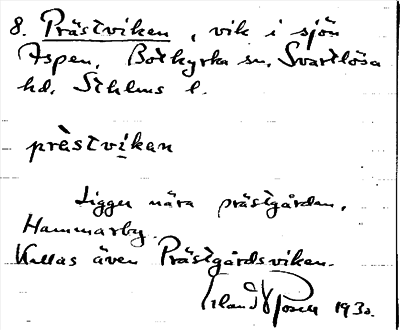 8. Prästviken, vik i sjön
Aspen, Botkyrka sn, Svartlösa
hd, Sthlms l.
prèstvikan
Ligger nära prästgården,
Hammarby.
Kallas även Prästgårdsviken.
Erland Rosell 1930.